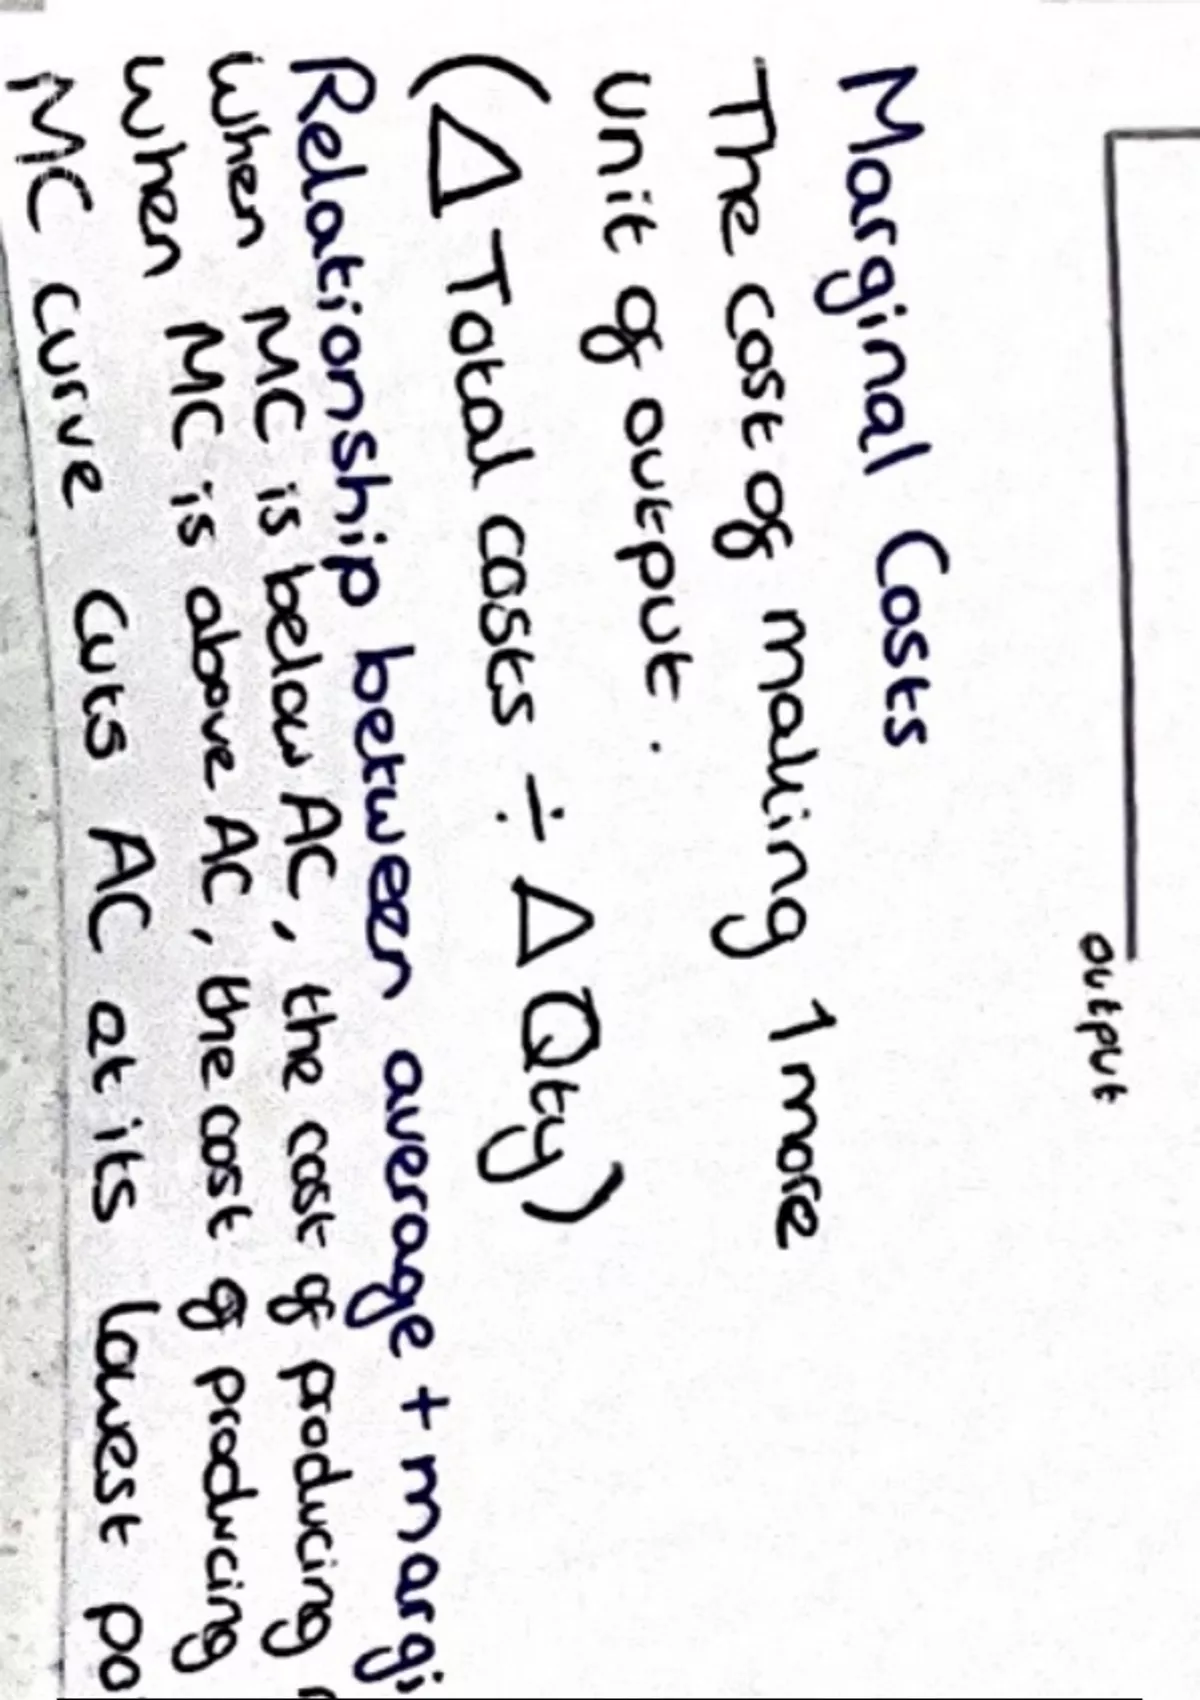 output
Marginal Costs
The cost of making 1 more
unit of output.
(Δ Total costs ÷ Δ Qty)
Relationship between average + margi
When MC is below AC, the cost of producing
When MC is above AC, the cost of producing
MC curve cuts AC at its lowest po